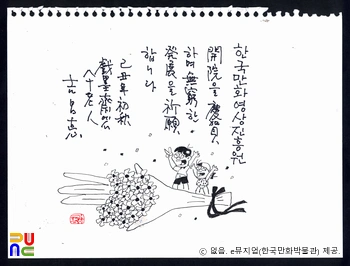 한국만화영상진흥원
開院을 慶賀
하며 無窮한
發展을 祈願
합니다
己丑年 初秋
八十老人
PUNC
© 없음. e뮤지엄(한국만화박물관) 제공.